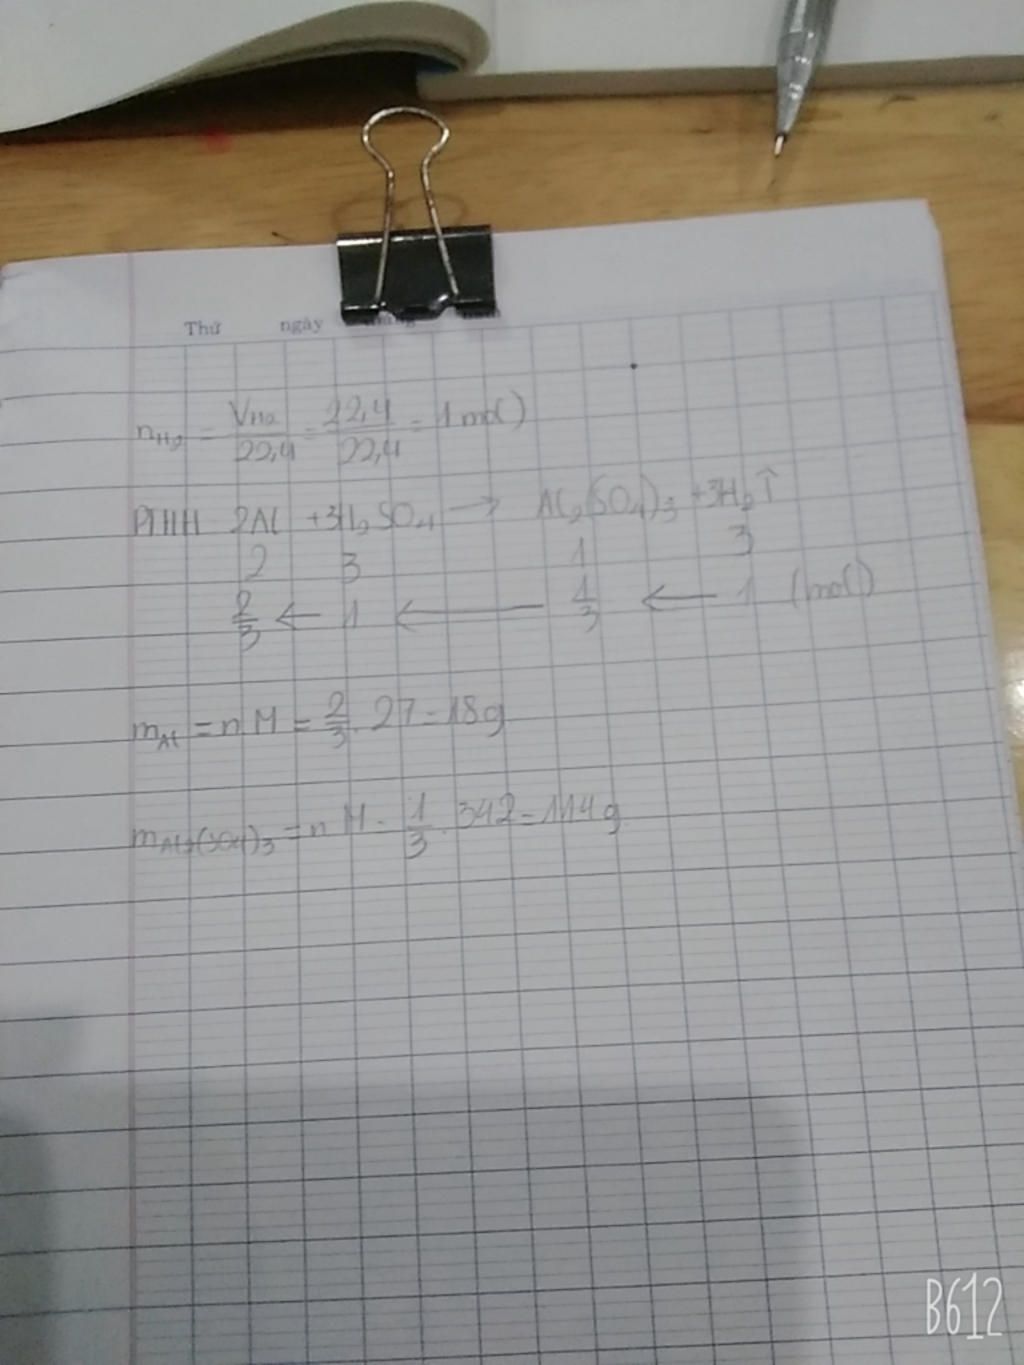 Thứ ngày tháng năm
nH2 = VH2/22,4 = 22,4/22,4 = 1 mol)
PTHH 2Al + 3H2SO4 → Al2(SO4)3 + 3H2↑
2 3 1 3
2/3 ← 1 ← 1/3 ← 1 (mol)
mAl = n.M = 2/3 . 27 = 18g
mAl2(SO4)3 = n.M = 1/3 . 342 = 114g
B612